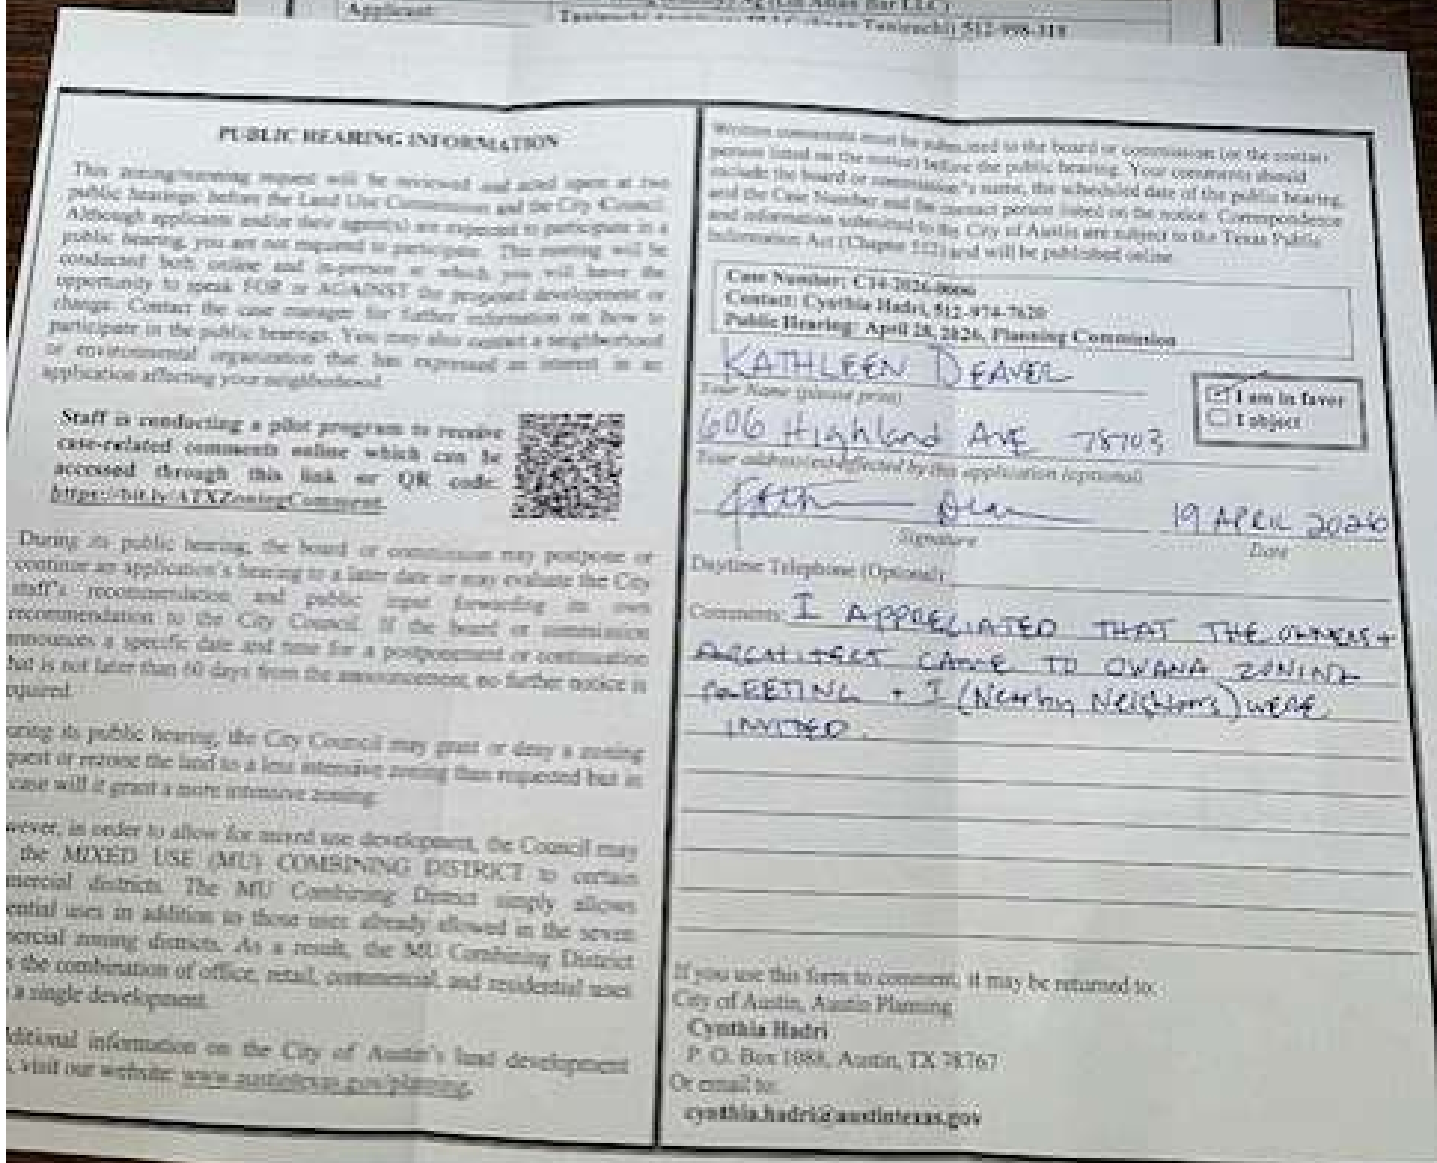 Applicant:
(Lin Asian Bar LLC)
512-998-318
PUBLIC HEARING INFORMATION
This zoning/rezoning request will be reviewed and acted upon at two
public hearings: before the Land Use Commission and the City Council.
Although applicants and/or their agent(s) are expected to participate in a
public hearing, you are not required to participate. This meeting will be
conducted both online and in-person at which you will have the
opportunity to speak FOR or AGAINST the proposed development or
change. Contact the case manager for further information on how to
participate in the public hearings. You may also contact a neighborhood
or environmental organization that has expressed an interest in an
application affecting your neighborhood.
Staff is conducting a pilot program to receive
case-related comments online which can be
accessed through this link or QR code:
https://bit.ly/ATXZoningComment.
During its public hearing, the board or commission may postpone or
continue an application's hearing to a later date or may evaluate the City
staff's recommendation and public input forwarding its own
recommendation to the City Council. If the board or commission
announces a specific date and time for a postponement or continuation
that is not later than 60 days from the announcement, no further notice is
required.
During its public hearing, the City Council may grant or deny a zoning
quest or rezone the land to a less intensive zoning than requested but in
case will it grant a more intensive zoning.
wever, in order to allow for mixed use development, the Council may
the MIXED USE (MU) COMBINING DISTRICT to certain
mercial districts. The MU Combining District simply allows
ential uses in addition to those uses already allowed in the seven
ercial zoning districts. As a result, the MU Combining District
s the combination of office, retail, commercial, and residential uses
a single development.
ditional information on the City of Austin's land development
, visit our website: www.austintexas.gov/planning.
Written comments must be submitted to the board or commission (or the contact
person listed on the notice) before the public hearing. Your comments should
include the board or commission's name, the scheduled date of the public hearing,
and the Case Number and the contact person listed on the notice. Correspondence
and information submitted to the City of Austin are subject to the Texas Public
Information Act (Chapter 552) and will be published online.
Case Number: C14-2026-0006
Contact: Cynthia Hadri, 512-974-7620
Public Hearing: April 28, 2026, Planning Commission
KATHLEEN DEAVER
Your Name (please print)
I am in favor
I object
606 Highland AVE 78703
Your address(es) affected by this application (optional)
19 APRIL 2026
Signature Date
Daytime Telephone (Optional):
Comments: I APPRECIATED THAT THE OWNERS +
ARCHITECT CAME TO OWANA ZONING
MEETING + I (Nearby Neighbors) WERE
INVITED.
If you use this form to comment, it may be returned to:
City of Austin, Austin Planning
Cynthia Hadri
P. O. Box 1088, Austin, TX 78767
Or email to:
cynthia.hadri@austintexas.gov